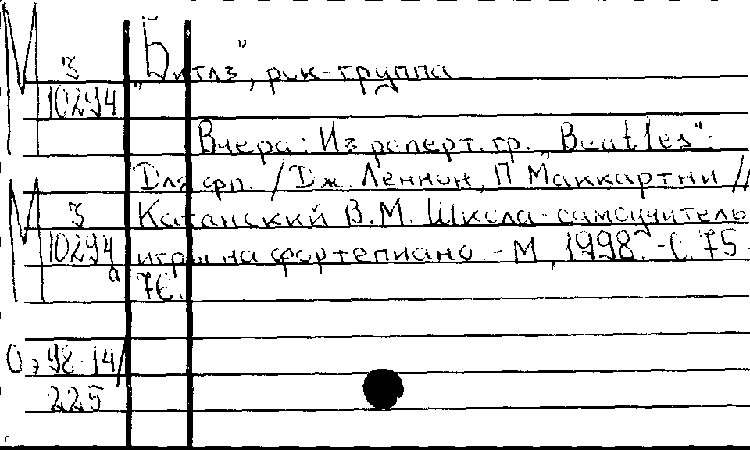 М
З
10294
„Битлз", рок-группа
Вчера: Из реперт. гр. „Beatles":
Для фп. / Дж. Леннон, П. Маккартни //
М
З
10294
а
Катанский В.М. Школа-самоучитель
игры на фортепиано. - М., 1998. - С. 75-
76.
О, 98-14/
225